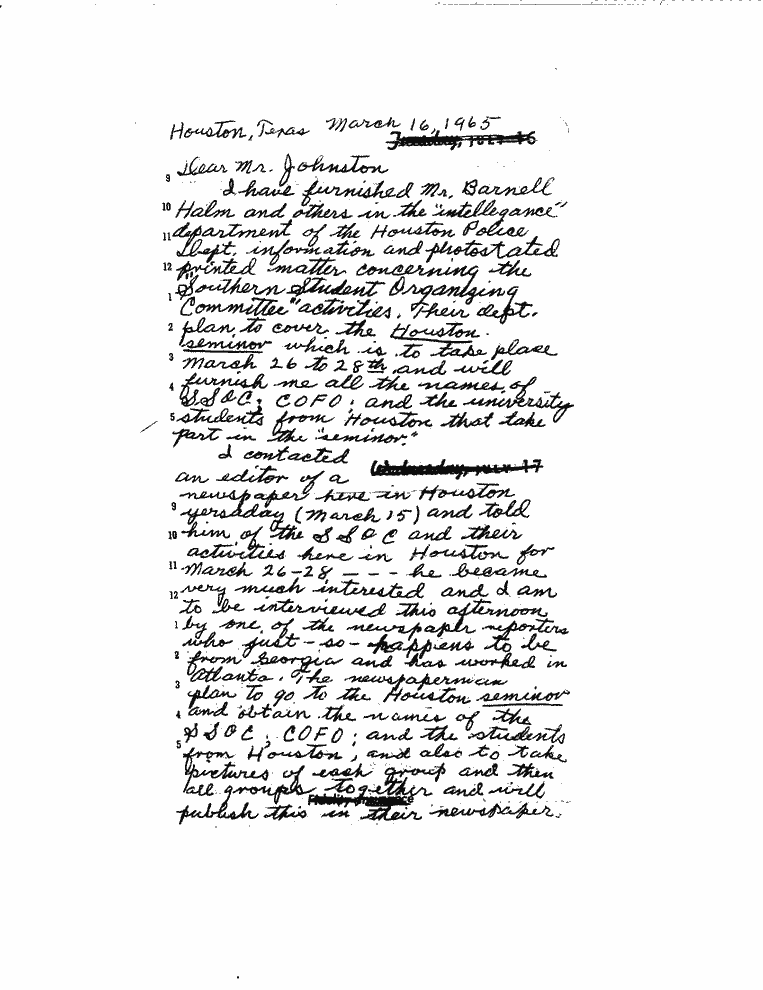 Houston, Texas March 16, 1965
9 Dear Mr. Johnston
I have furnished Mr. Barnell
10 Halm and others in the "intellegance"
11 department of the Houston Police
Dept. information and photostated
12 printed matter concerning the
"Southern Student Organizing
1 Committee" activities. Their dept.
2 plan to cover the Houston
seminor which is to take place
3 March 26 to 28th and will
4 furnish me all the names of
SSOC; COFO; and the university
5 students from Houston that take
part in the "seminor."
I contacted
an editor of a
newspaper here in Houston
9 yersaday (March 15) and told
10 him of the SSOC and their
activities here in Houston for
11 March 26-28, --- he became
12 very much interested and I am
to be interviewed this afternoon
1 by one of the newspaper reporters
who just-so-happens to be
2 from Georgia and has worked in
Atlanta. The newspaperman
3 plan to go to the Houston seminor
4 and obtain the names of the
SSOC; COFO; and the students
5 from Houston, and also to take
pictures of each group and then
all groups together and will
publish this in their newspaper.